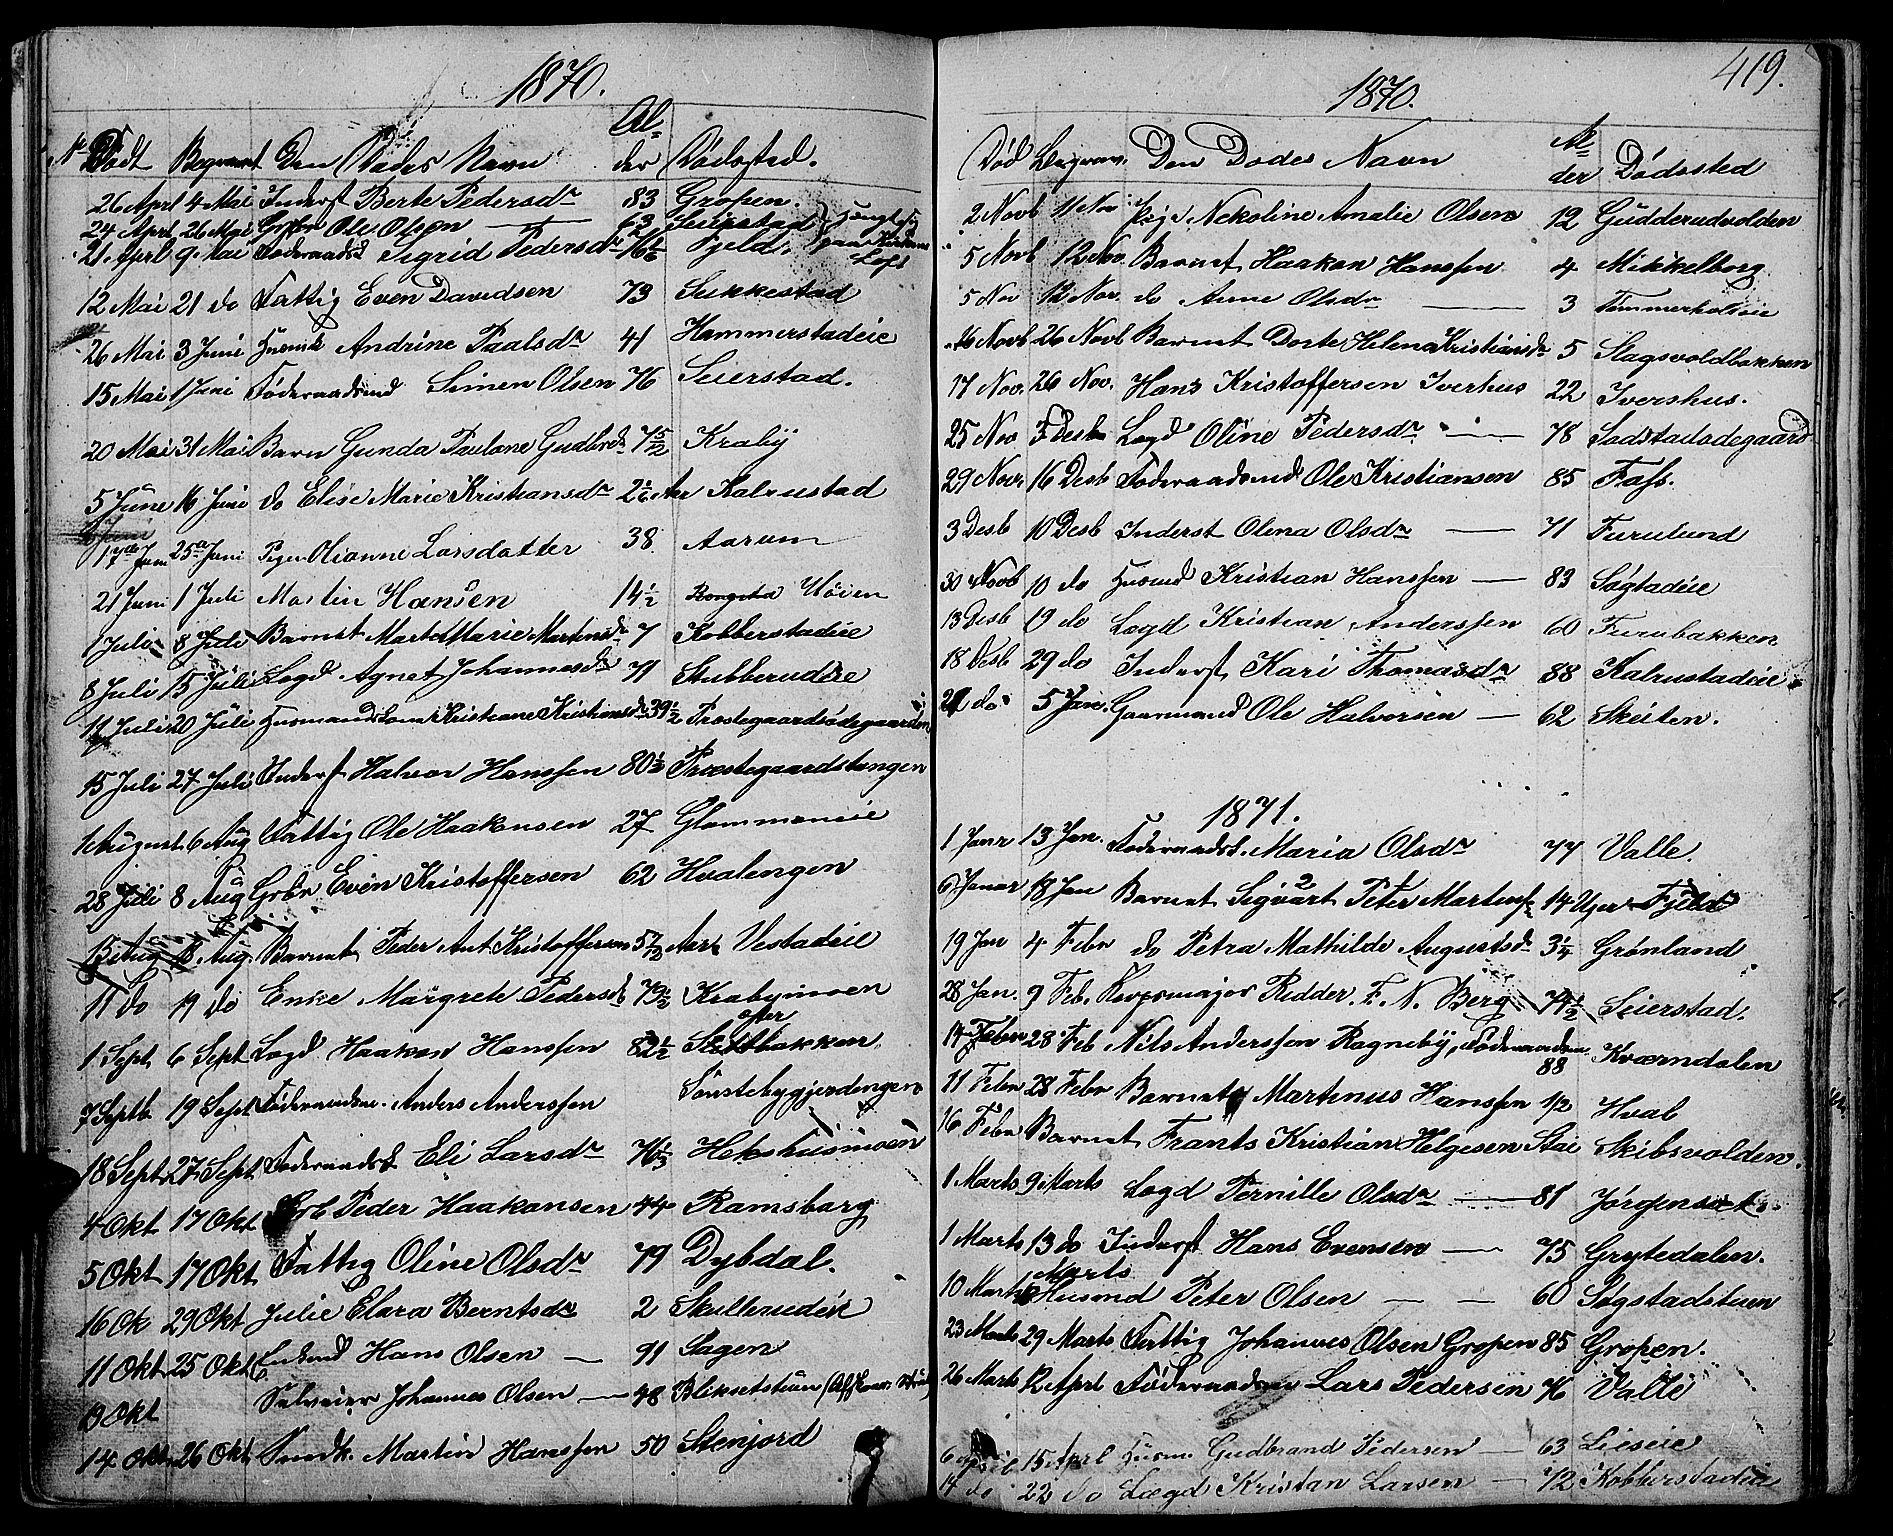 1870.
Al-
Født Begravet Den Dødes Navn der Dødssted.
26 April 4 Mai Inderst Berte Pedersdr 83 Gropen.
24 April 26 Mai Grbr Ole Olsen — 63 Seierstad
21 April 9 Mai Føderaadsk Sigrid Pedersdr 76 Fjeld.
12 Mai 21 do Fattig Even Davidsen 73 Sukkestad
26 Mai 3 Juni Andrine Paalsdr 41 Hammerstadeie
15 Mai 1 Juni Føderaadsmd Simen Olsen 76 Seierstad.
20 Mai 31 Mai Barn Gunda Paulane Gudbrdr 7 5/12 Kraby
5 June 16 Juni do Elise Marie Kristiansdr 2 1/6 Aar Kalrustad
17de Juni 25de Juni Pigen Olianne Larsdatter 38 Aarum
21 Juni 1 Juli Martin Hansen 14 1/2
1 Juli 8 Juli Barnet Marte Marie Martinsdr 7 Kobberstadeie
8 Juli 15 Juli Lægd Agnet Johannesdr 71 Stubberudeie
11 Juli 20 Juli Kristiane Kristiansdr 39 1/2 Præstegaardsødegaarden
15 Juli 27 Juli Inderst Halvor Hanssen 80 1/2 Præstegaardstangen
1 August 6 Aug Fattig Ole Haakensen 27 Glommeneie
28 Juli 8 Aug Grbr Even Kristoffersen 62 Hvalengen
13 Aug 18 Aug. Barnet Peder Ant. Kristoffersen Aar Vestadeie
11 do 19 do Enke Margrete Pedersd Krabymoen
1 Sept 6 Sept Lægd Haakon Hanssen 82 1/2
7 Septb 19 Sept Føderaadsm. Anders Anderssen Tønstebygjerdengen
18 Sept 27 Sept Føderaadsk Eli Larsdr Hekshusmoen
4 Okt 17 Okt Grb Peder Haakonsen 44 Ramsbarg
5 Okt 17 Okt Fattig Oline Olsdr 79 Dybdal.
16 Ok 29 Okt Julie Elara Berntsdr 2 Skullerudeie
11 Okt 25 Okt Hans Olsen — 91 Sagen
Okt Selveier Johannes Olsen — 48 Bliksetstuen
14 Okt 26 Okt Martin Hanssen 50 Stenjord
419.
1870.
Al-
Død Begrav. Den Dødes Navn der Dødssted
2 Novb 11 Nov Pige Nekoline Amalie Olsen 12 Gudderudvolden
5 Novb 12 Nov. Barnet Haakon Hanssen 4 Mikkelborg
5 Nov 12 Nov. do Anne Olsdr — 3 Tømmerholteie
16 Novb 26 Novb Barnet Dorte Helena Kristiansdr 5 Slagsvoldbakken
17 Nov. 26 Nov. Hans Kristoffersen Iverhus 22 Ivershus.
25 Nov 7 Desb Lægd Oline Pedersdr — 78 Sodstadødegaard
29 Nov. 16 Desb Føderaadsmd Ole Kristiansen 85 Fass.
3 Desb 10 Desb Inderst Olena Olsdr — 71 Furulund
30 Novb 10 do Husmd Kristian Hanssen — 83 Søgstadeie
13 Desb 19 do Lægd Kristian Anderssen 60 Furubakken
18 Desb 29 do Inderst Kari Thomasdr 88 Kalrustadeie
do 5 Jan. Gaarmand Ole Halvorsen — 62 Skeiten.
1871.
1 Janr 13 Jan. Føderaadsk. Maria Olsdr 77 Valle.
6 Januar 18 Jan Barnet Sigvart Peter Martins 14 Uger Fjeld
19 Jan 4 Febr do Petra Mathilde Augustsd. 3 1/4 Grønland
28 Jan. 9 Feb. Korpsmajor Ridder. F. N. Berg 74 1/2 Seierstad.
14 Febr 28 Feb Nils Anderssen Ragneby, Føderaadsm. 88 Kværndalen
11 Febr 28 Febr Barnet Martinus Hanssen 1/2 Hval
16 Febr Barnet Frants Kristian Helgesen Skibsvolden.
1 Marts 9 Marts Lægd Pernille Olsdr — 81
1 Marts 13 do Inderst Hans Evensen — 75 Grytedalen.
10 Marts Marts Husmd Peter Olsen — — 60 Søgstadstuen
23 Marts 29 Marts Fattig Johannes Olsen Gropen 85 Gropen.
26 Marts 12 Aprl Føderaadsm Lars Pedersen 76 Valle
6 April 15 Aprl Husm Gudbrand Pedersen — 63 Lieseie
14 do 22 do Lægd Kristan Larsen — 72 Kobberstadeie